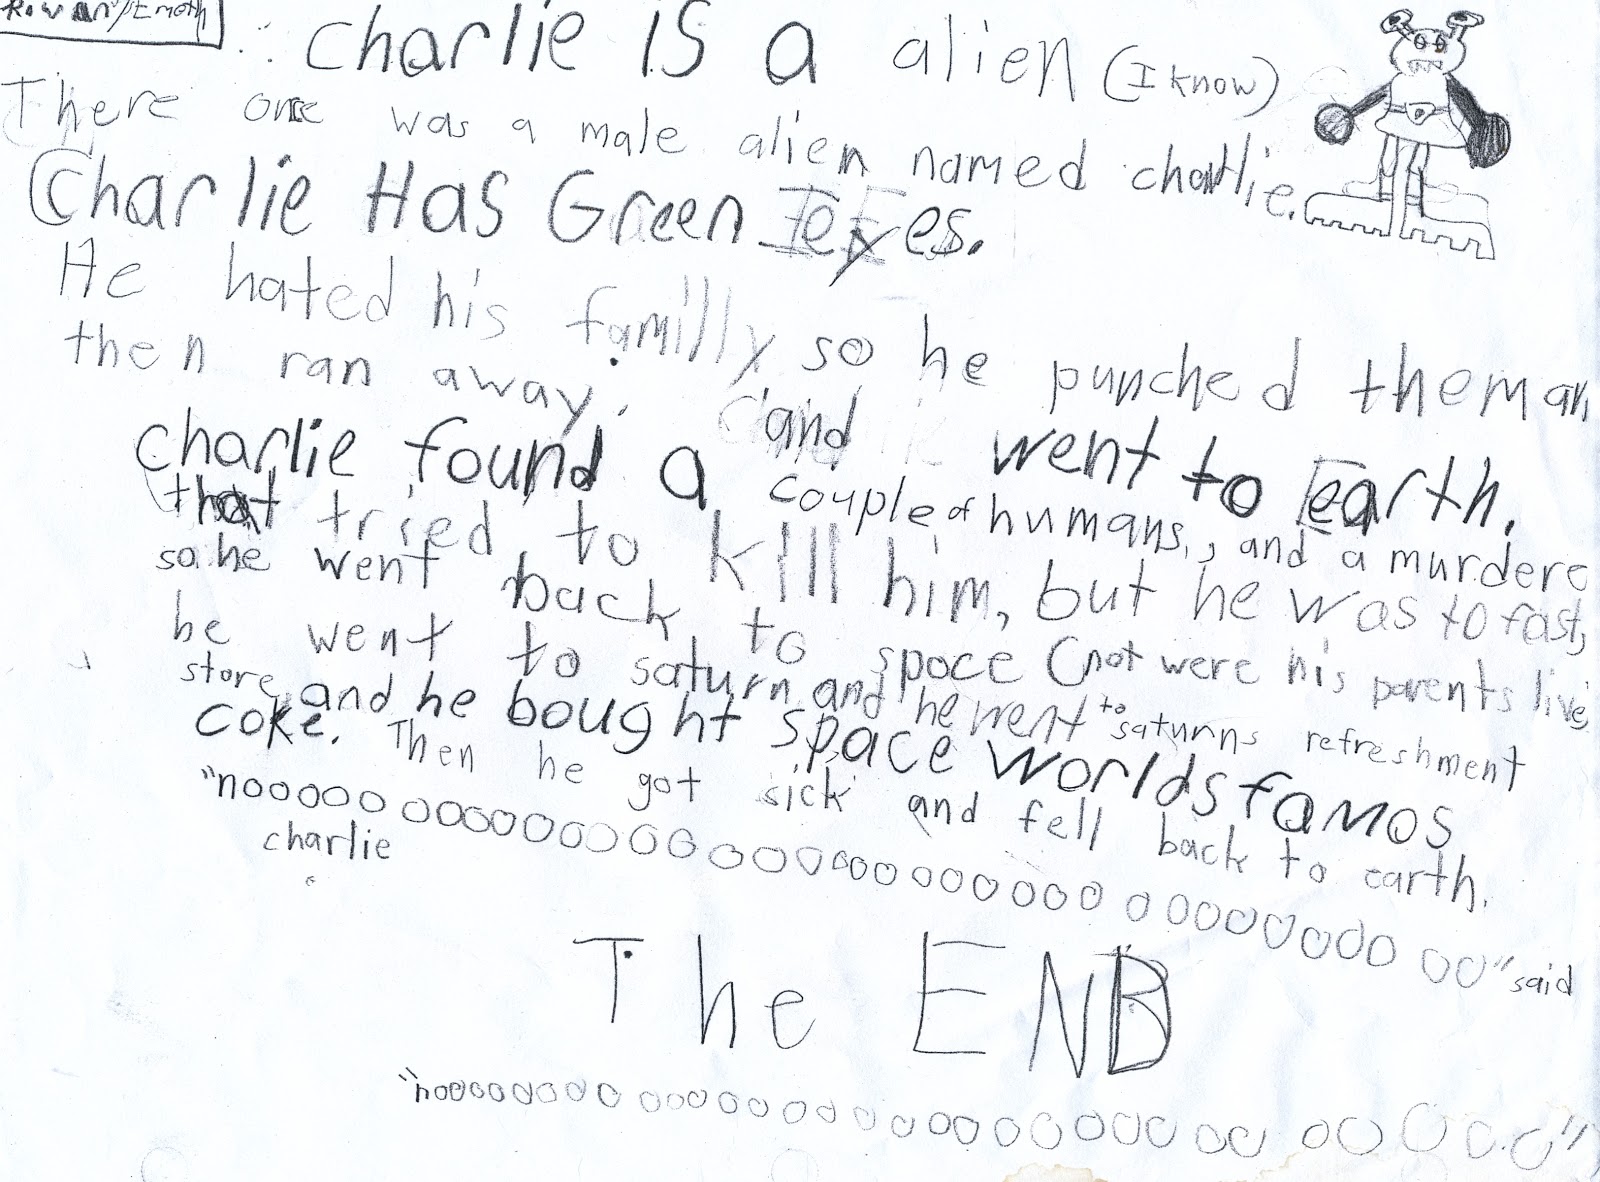 Rowan/
charlie is a alien (I know)
There once was a male alien named charlie.
Charlie Has Green Eyes.
He hated his familly so he punched them an
then ran away. and went to Earth.
charlie found a couple of humans, and a murdere
that tried to kill him, but he was to fast,
so he went back to space (not were his parents live
he went to saturn and he went to saturns refreshment
store, and he bought space worlds famos
coke. Then he got sick and fell back to earth.
"noooooooooooooooooooooooooooooooooooo" said
charlie
The END
"nooooooooooooooooooooooooooooooo"